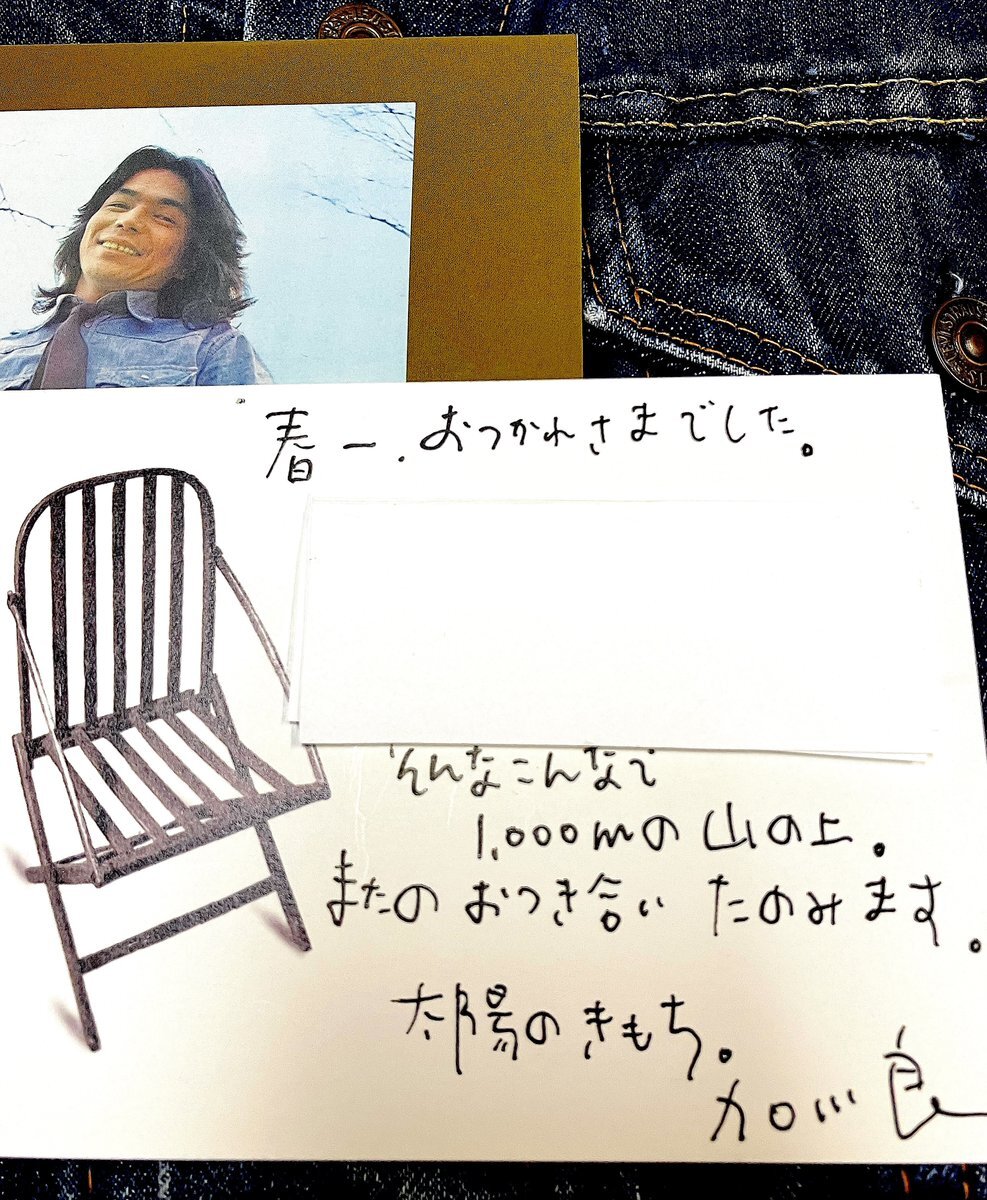 春一.おつかれさまでした。
そんなこんなで
1,000mの山の上。
またの おつき合い たのみます。
太陽の きもち。
加川 良